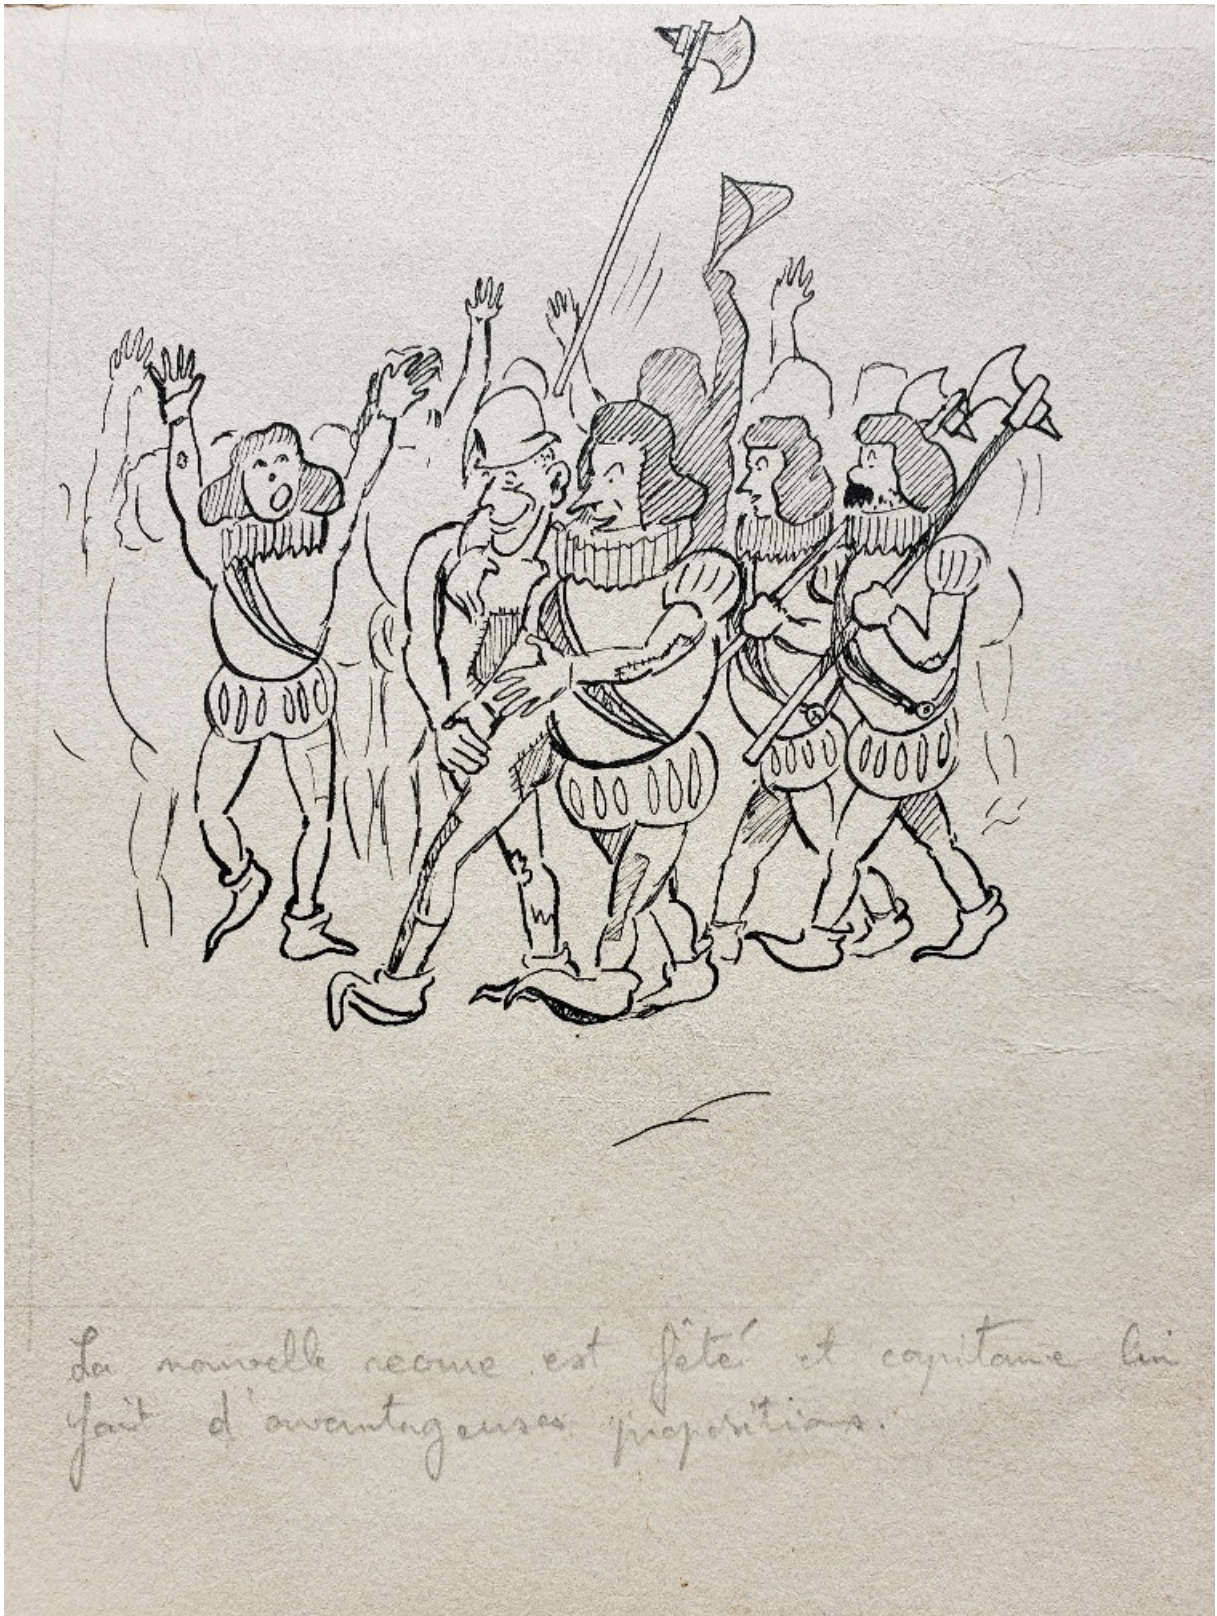 La nouvelle recrue est fêté et capitaine lui
fait d'avantageuses propositions.